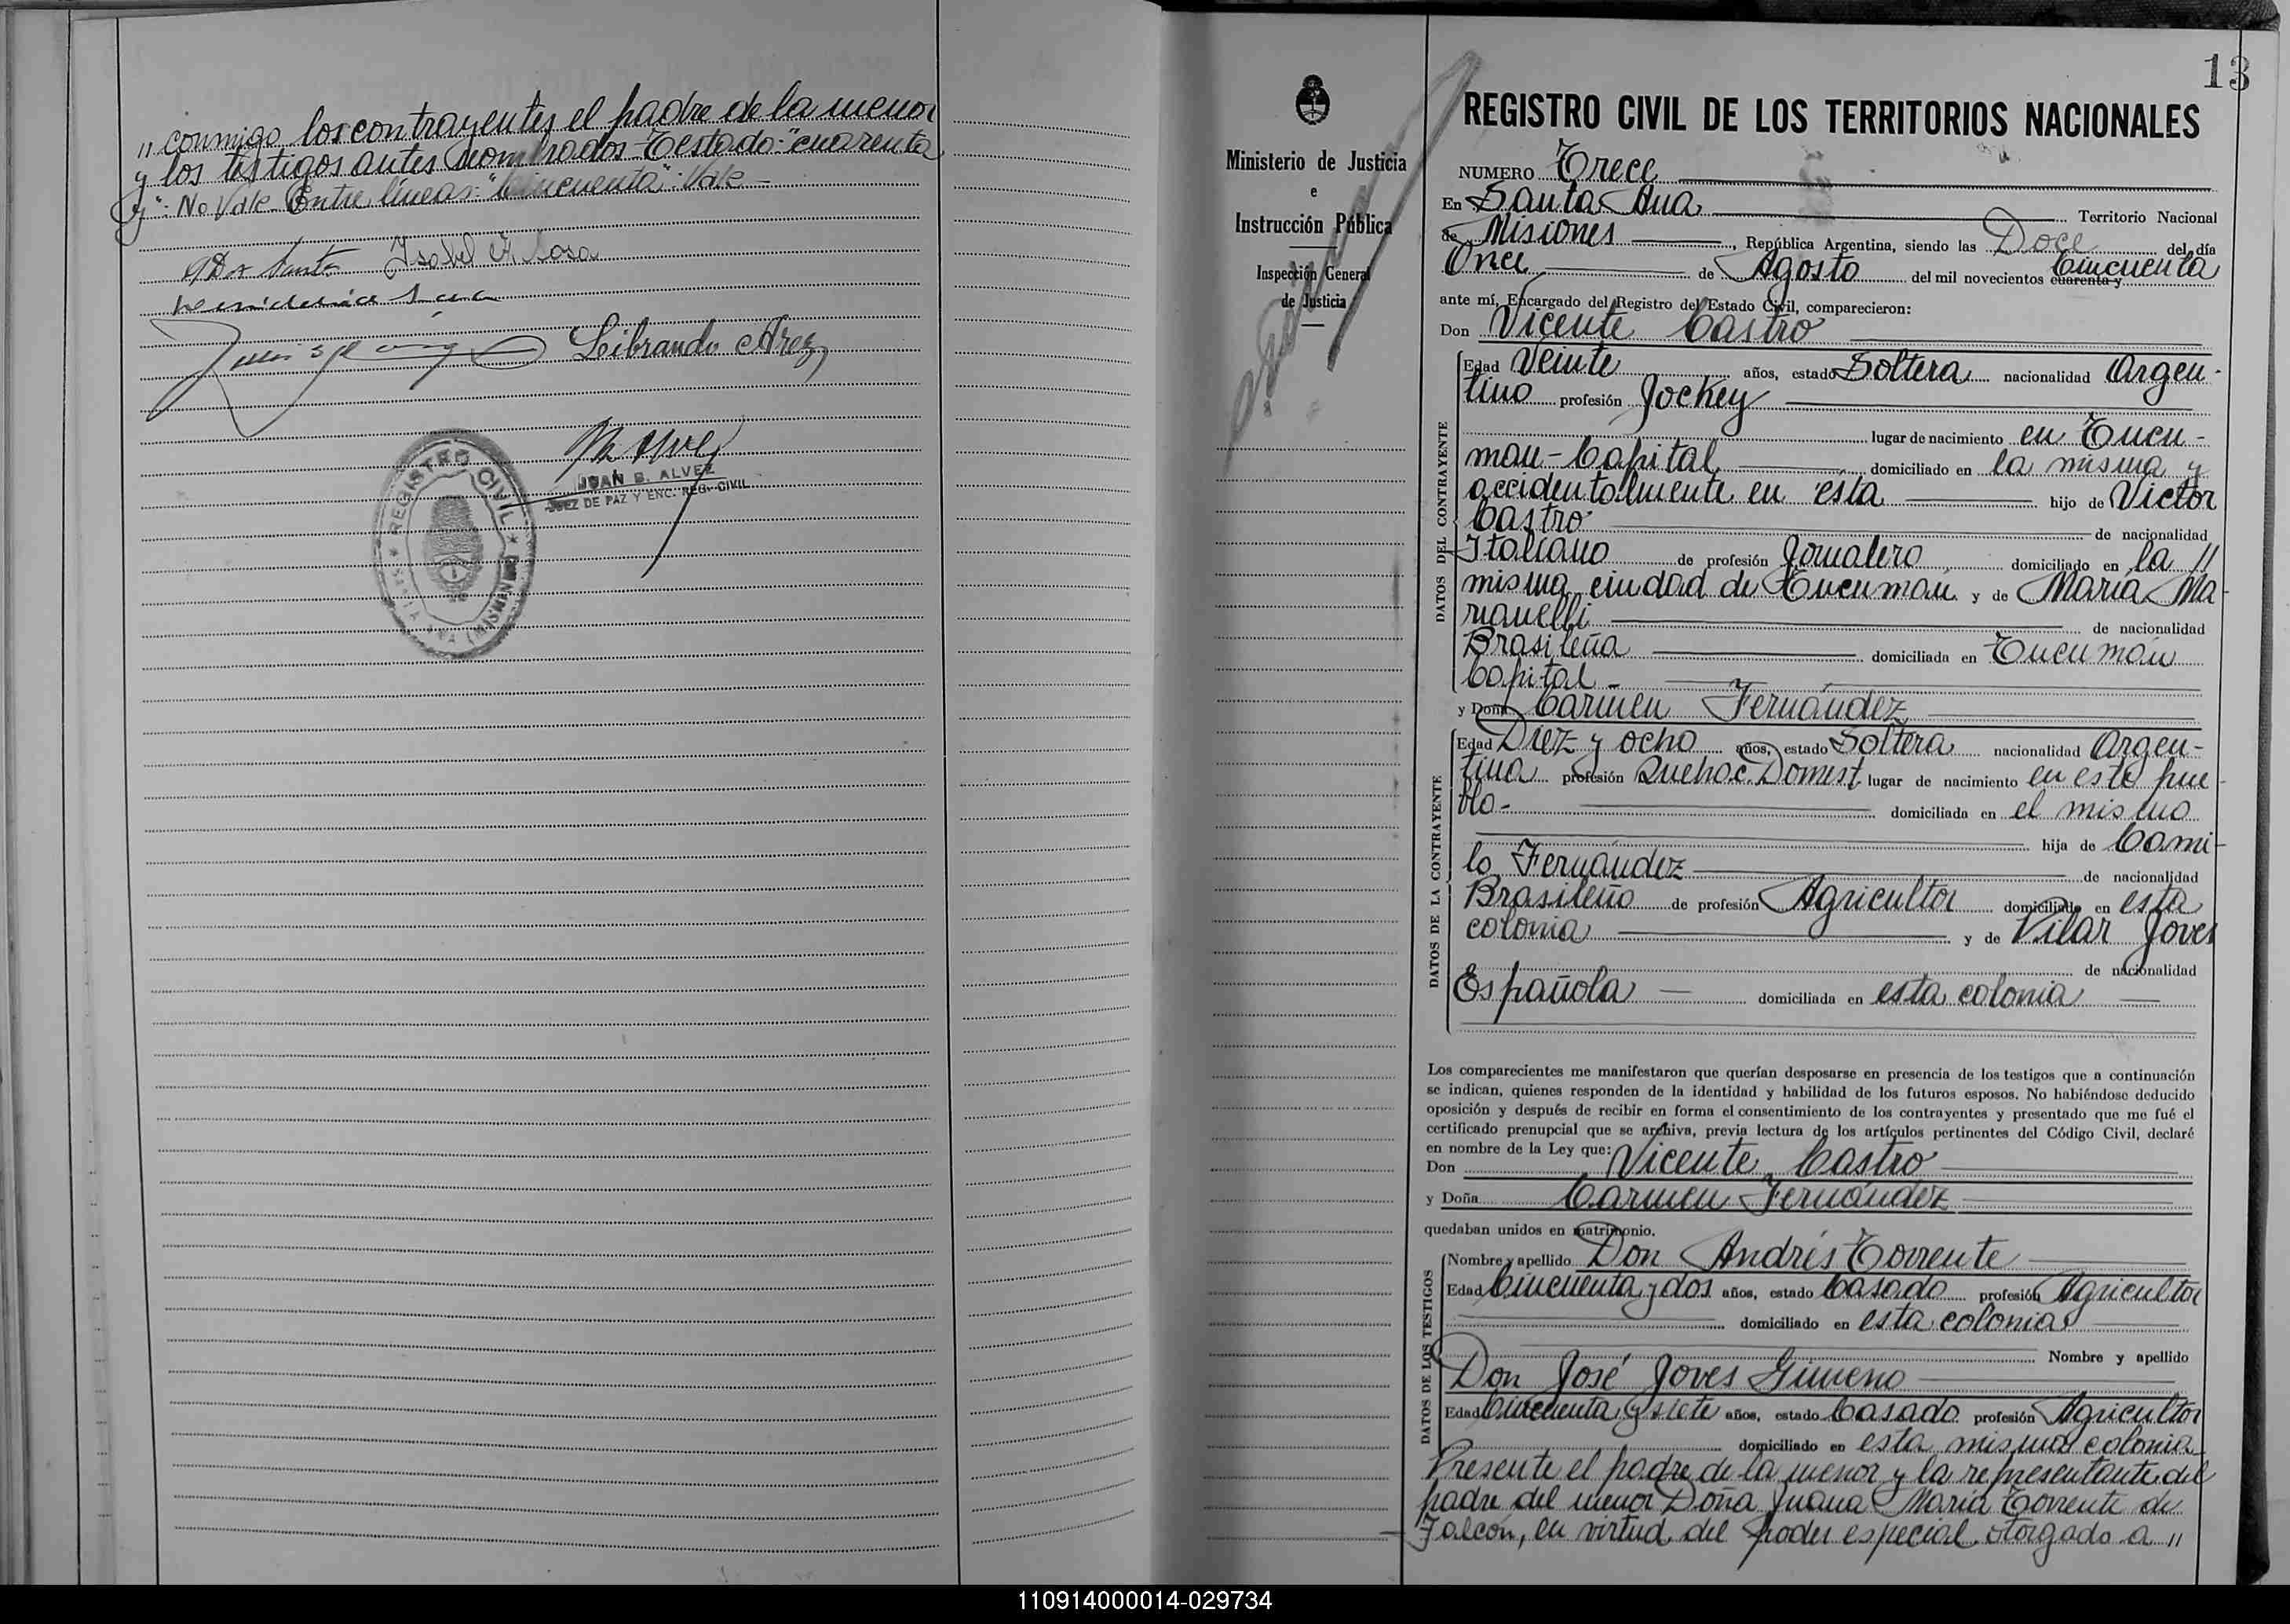 " conmigo los contrayentes el padre de la menor
y los testigos antes nombrados - Testado: "cuarenta
y": No Vale - Entre líneas: "Cincuenta": Vale -
Isabel A. Sosa
Librando Arez
JUAN B. ALVEZ
JUEZ DE PAZ Y ENC. REG. CIVIL
REGISTRO CIVIL
SANTA ANA (MISIONES)
13
Ministerio de Justicia
e
Instrucción Pública
Inspección General
de Justicia
REGISTRO CIVIL DE LOS TERRITORIOS NACIONALES
NUMERO Trece
En Santa Ana Territorio Nacional
de Misiones, República Argentina, siendo las Doce del día
Once de Agosto del mil novecientos cuarenta y Cincuenta
ante mí, Encargado del Registro del Estado Civil, comparecieron:
Don Vicente Castro
DATOS DEL CONTRAYENTE
Edad Veinte años, estado Soltera nacionalidad Argen-
tino profesión Jockey
lugar de nacimiento en Tucu-
man - Capital domiciliado en la misma y
accidentalmente en ésta hijo de Victor
Castro de nacionalidad
Italiano de profesión Jornalero domiciliado en la "
misma ciudad de Tucumán y de María Ma-
rianelli de nacionalidad
Brasileña domiciliada en Tucumán
Capital -
y Doña Carmen Fernández
DATOS DE LA CONTRAYENTE
Edad Diez y ocho años, estado Soltera nacionalidad Argen-
tina profesión Quehac. Domest. lugar de nacimiento en este pue-
blo - domiciliada en el mismo
hija de Cami-
lo Fernández de nacionalidad
Brasileño de profesión Agricultor domiciliado en esta
colonia y de Pilar Joves
de nacionalidad
Española domiciliada en esta colonia
Los comparecientes me manifestaron que querían desposarse en presencia de los testigos que a continuación
se indican, quienes responden de la identidad y habilidad de los futuros esposos. No habiéndose deducido
oposición y después de recibir en forma el consentimiento de los contrayentes y presentado que me fué el
certificado prenupcial que se archiva, previa lectura de los artículos pertinentes del Código Civil, declaré
en nombre de la Ley que:
Don Vicente Castro
y Doña Carmen Fernández
quedaban unidos en matrimonio.
DATOS DE LOS TESTIGOS
Nombre y apellido Don Andrés Torrente
Edad Cincuenta y dos años, estado Casado profesión Agricultor
domiciliado en esta colonia
Nombre y apellido
Don José Joves Gimeno
Edad Cincuenta y siete años, estado Casado profesión Agricultor
domiciliado en esta misma colonia
Presente el padre de la menor y la representante del
padre del menor Doña Juana María Torrente de
Falcón, en virtud del poder especial otorgado a "
110914000014-029734